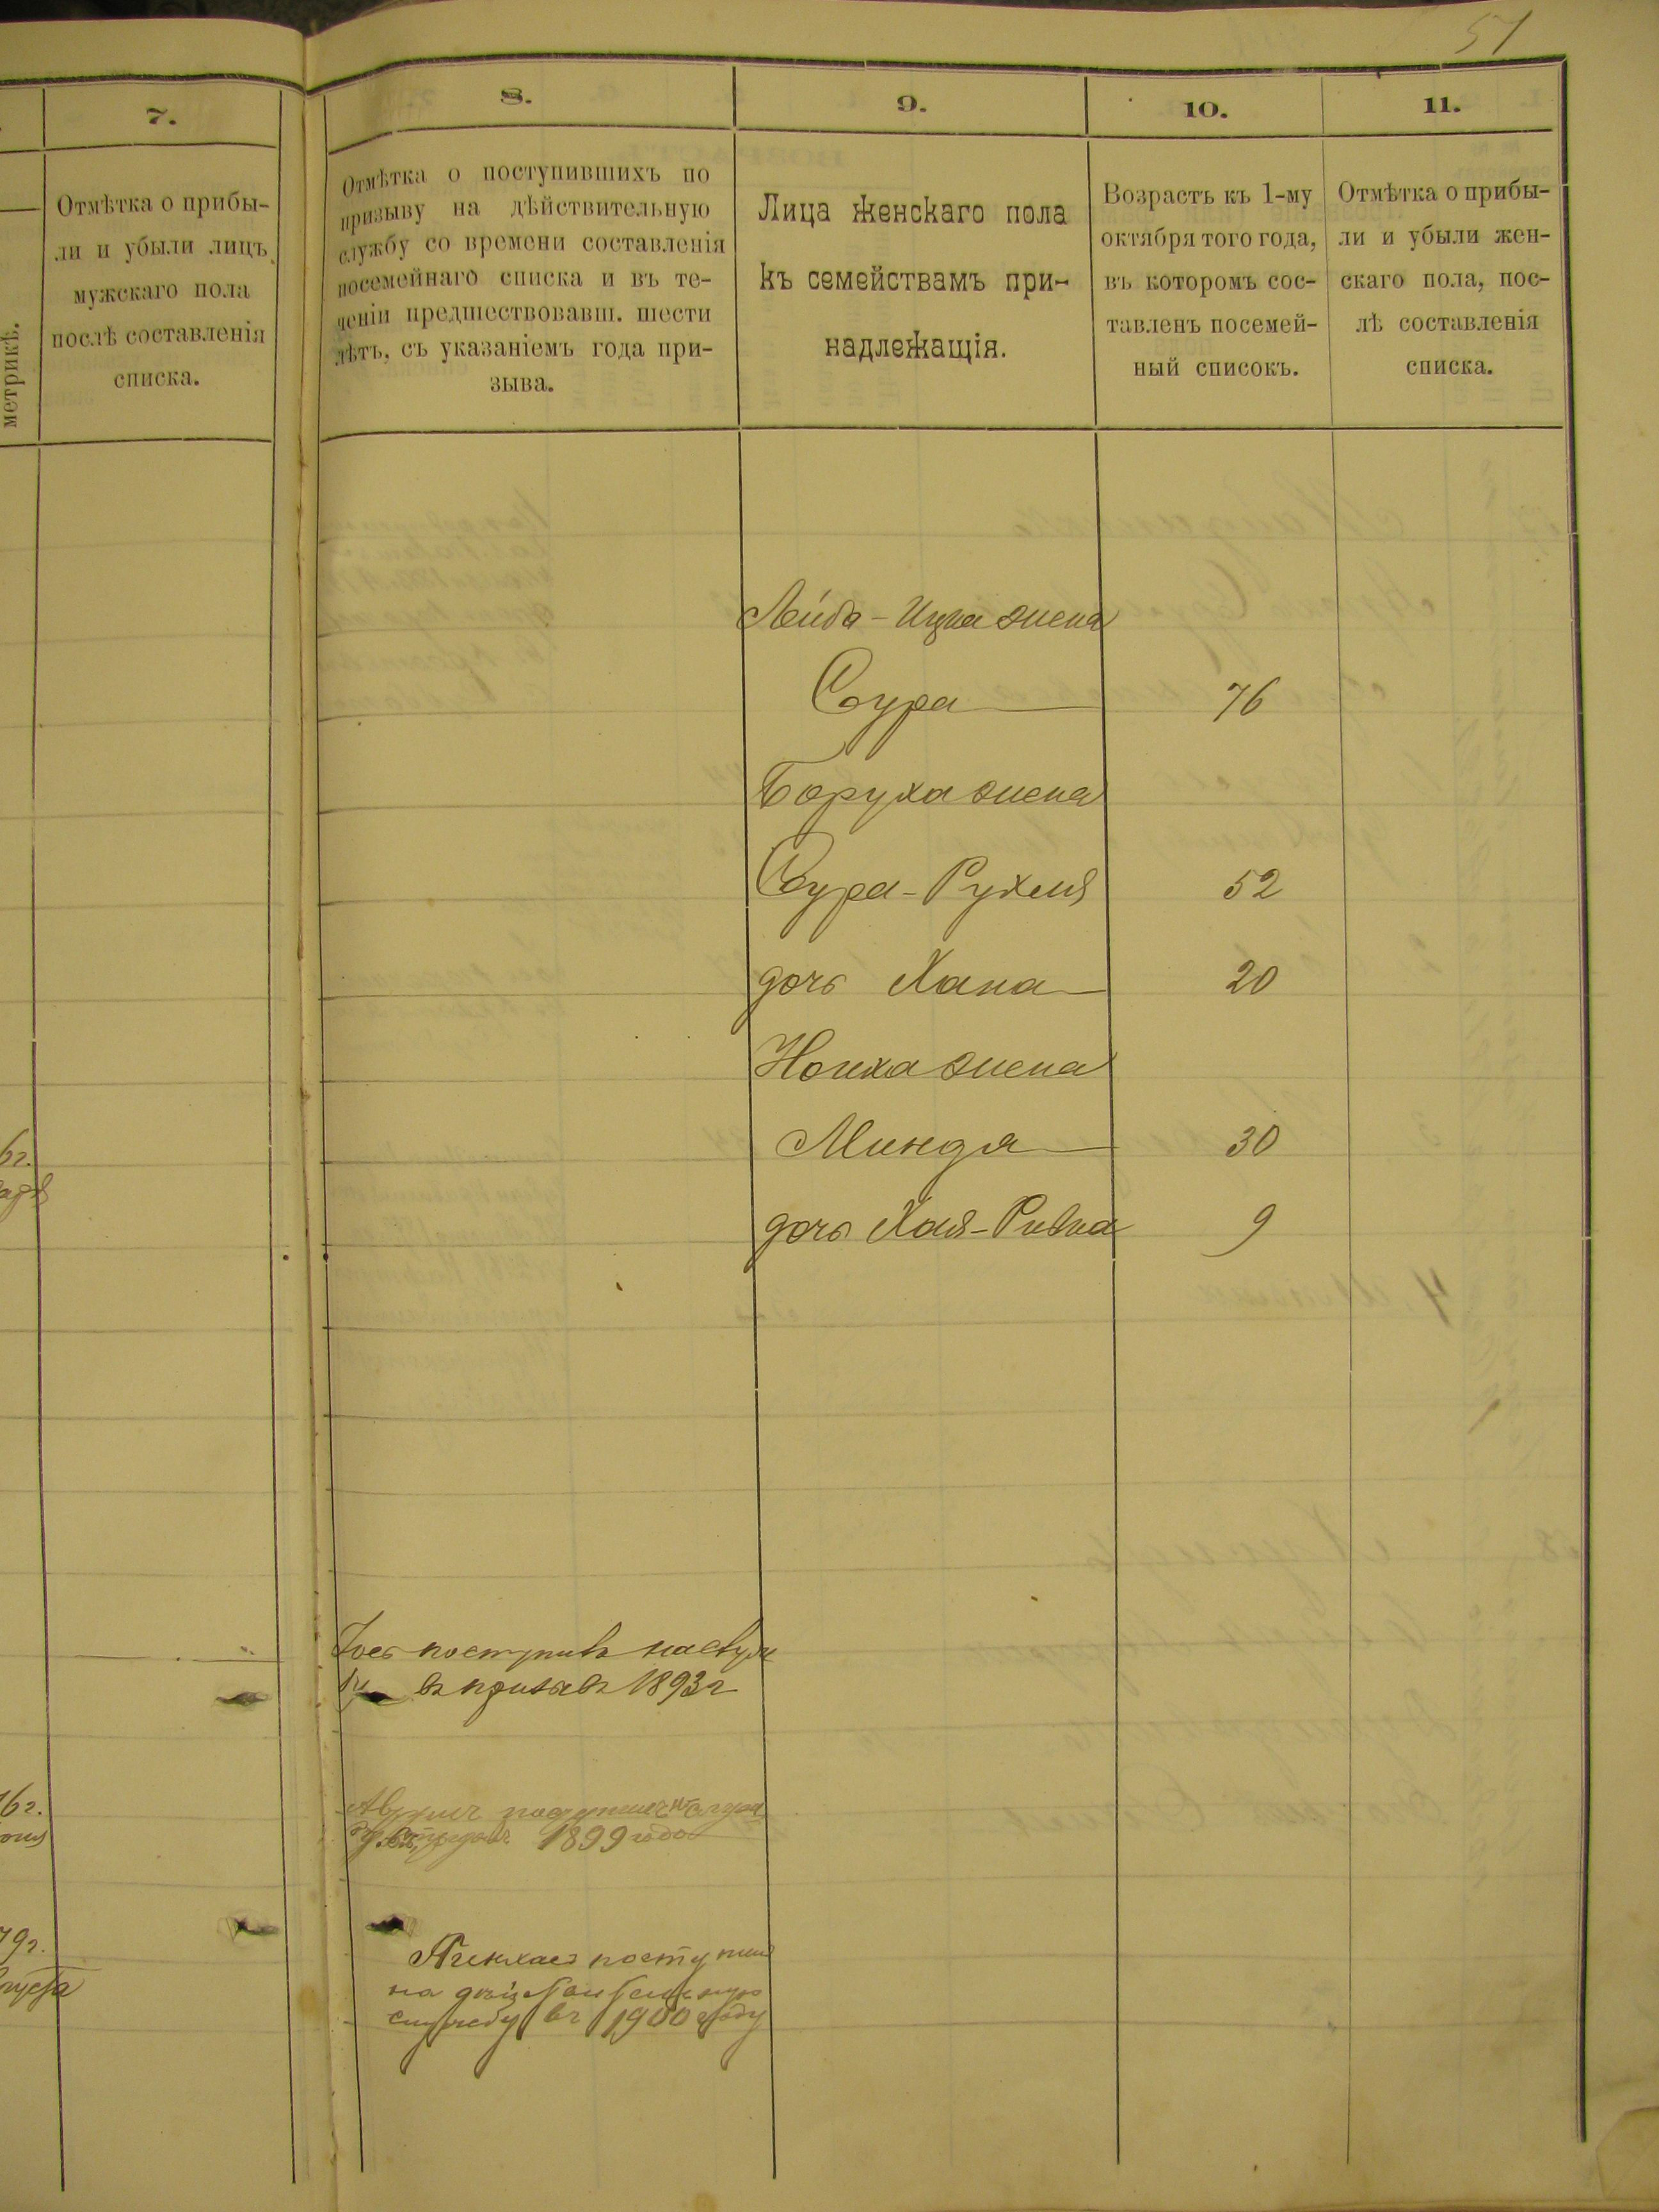 51
7.
8.
9.
10.
11.
метрикѣ.
Отмѣтка о прибы-
ли и убыли лицъ
мужскаго пола
послѣ составленія
списка.
Отмѣтка о поступившихъ по
призыву на дѣйствительную
службу со времени составленія
посемейнаго списка и въ те-
ченіи предшествовавш. шести
лѣтъ, съ указаніемъ года при-
зыва.
Лица женскаго пола
къ семействамъ при-
надлежащія.
Возрастъ къ 1-му
октября того года,
въ которомъ сос-
тавленъ посемей-
ный списокъ.
Отмѣтка о прибы-
ли и убыли жен-
скаго пола, пос-
лѣ составленія
списка.
Лейба-Ицка жена
Сура 76
Боруха жена
Сура-Рухля 52
дочь Хана 20
Ноиха жена
Миндя 30
дочь Хая-Ривка 9
6г.
поступивъ
въ призывъ 1893г
6г.
1899 года
79г.
Пинхасъ поступил
на действительную
службу въ 1900 году